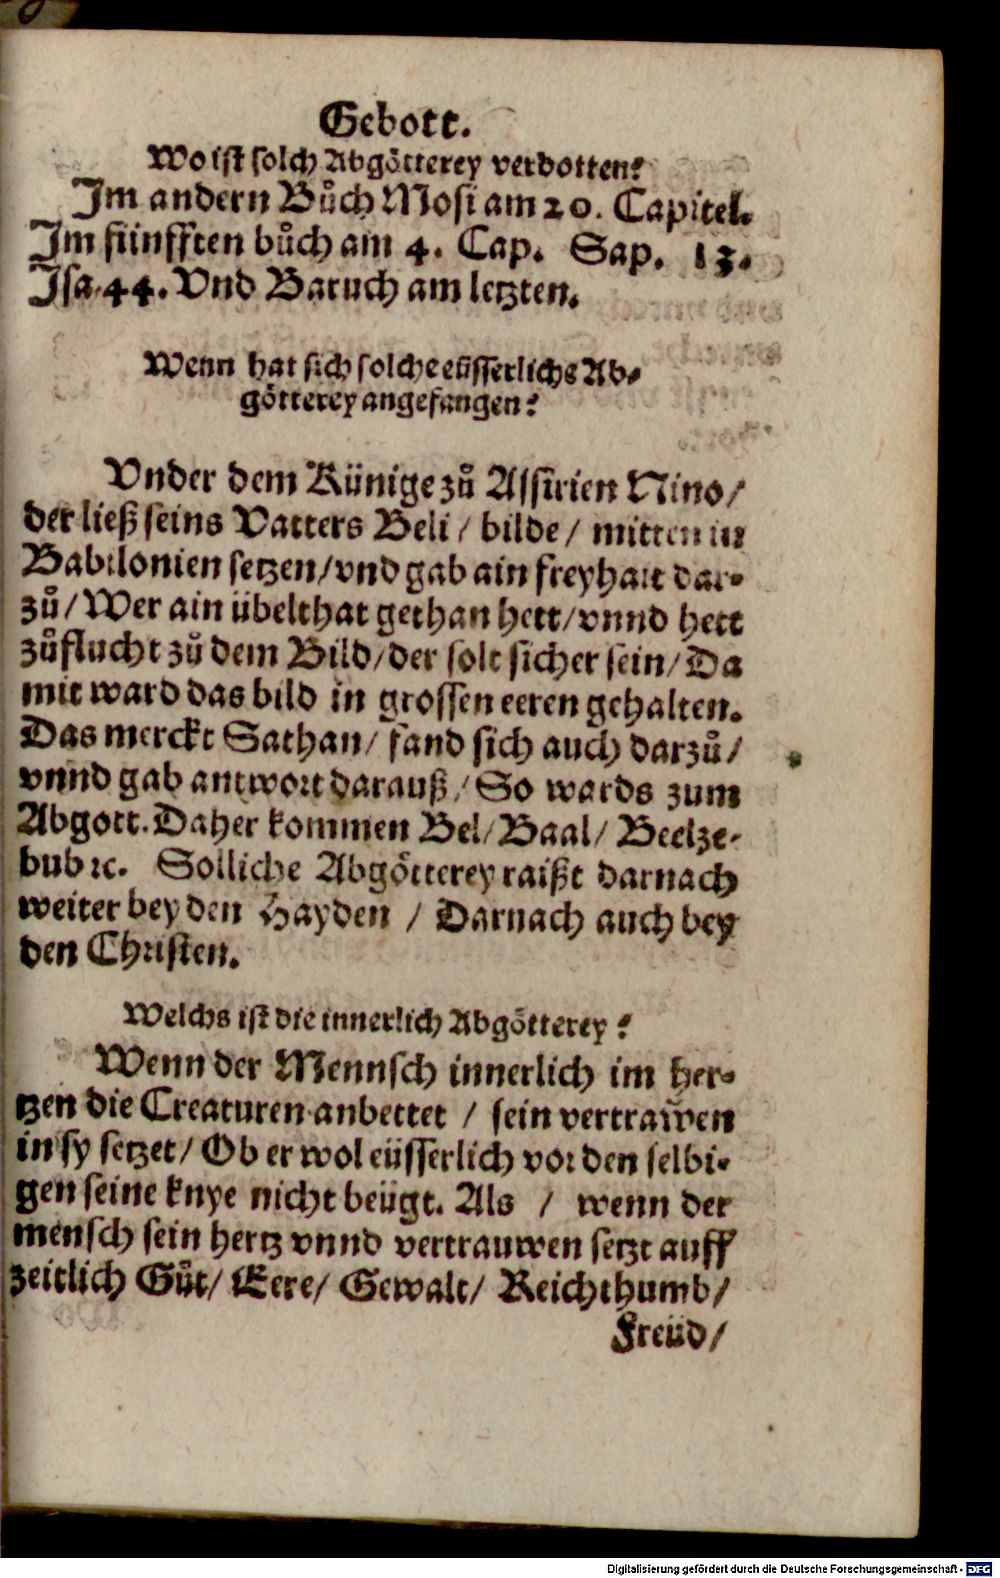 Gebott.
Wo ist solch Abgötterey verbotten?
Im andern Bůch Mosi am 20. Capitel.
Im fünfften bůch am 4. Cap. Sap. 13.
Isa. 44. Vnd Baruch am letzten.
Wenn hat sich solche eüsserliche Ab-
götterey angefangen?
Vnder dem Künige zů Assirien Nino/
der ließ seins Vatters Beli / bilde / mitten in
Babilonien setzen/vnd gab ain freyhait dar-
zů/Wer ain übelthat gethan hett/vnnd hett
zůflucht zů dem Bild/der solt sicher sein/Da
mit ward das bild in grossen eeren gehalten.
Das merckt Sathan/ fand sich auch darzů/
vnnd gab antwort darauß/So wards zum
Abgott. Daher kommen Bel/Baal/ Beelze-
bub ꝛc. Solliche Abgötterey raißt darnach
weiter bey den Hayden / Darnach auch bey
den Christen.
Welchs ist die innerlich Abgötterey?
Wenn der Mennsch innerlich im her-
tzen die Creaturen anbettet / sein vertrawen
in sy setzet/ Ob er wol eüsserlich vor den selbi-
gen seine knye nicht beügt. Als / wenn der
mensch sein hertz vnnd vertrauwen setzt auff
zeitlich Gůt/ Eere/ Gewalt/ Reichthumb/
Freüd/
Digitalisierung gefördert durch die Deutsche Forschungsgemeinschaft - DFG